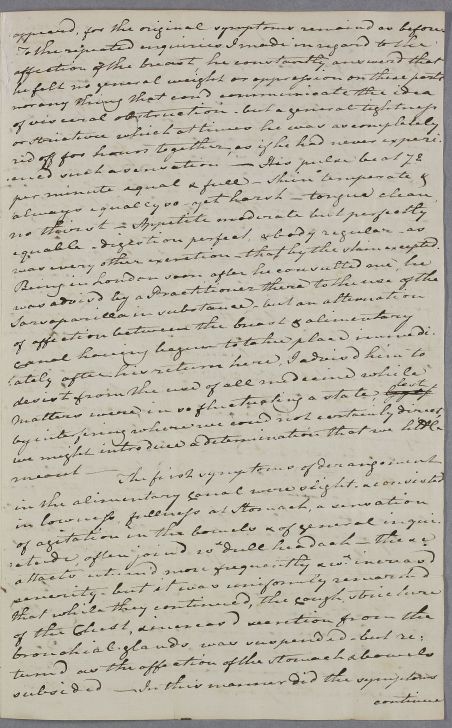 appeared, for the original symptoms remained as before
To the repeated enquiries I made in regard to the
affection of the breast he constantly answered that
he felt no general weight or oppression on these parts
nor any thing that could communicate the idea
of visceral obstruction - but a general tightness
or stricture which at times he was as completely
rid off for hours together, as if he had never experi-
enced such a sensation — His pulse beat 78
per minute equal & full - Skin temperate &
always equally so - yet harsh - tongue clean
no thirst - Appetite moderate but perfectly
equable - digestion perfect, & body regular - as
was every other excretion - that by the skin excepted.
Being in London soon after he consulted me, he
was advised by a Practitioner there to the use of the
Sarsaparilla in substance - but an alternation
of affection between the breast & alimentary
canal having begun to take place immedi-
ately after his return here, I advised him to
desist from the use of all medicine while
matters were in so fluctuating a state lest
by interfering where we could not certainly direct,
we might introduce a determination that we little
meant — The first symptoms of derangement
in the alimentary Canal were slight, & consisted
in lowness, fullness at Stomach, a sensation
of agitation in the bowels & of general inqui-
etude often joined wt. dull headach - these
attacks returned more frequently & wt. increased
severity - but it was uniformly remarked
that while they continued, the cough, stricture
of the Chest, & increased secretion from the
bronchial glands, was suspended - but re-
turned as the affection of the stomach & bowels
subsided — In this manner did the symptoms
continue